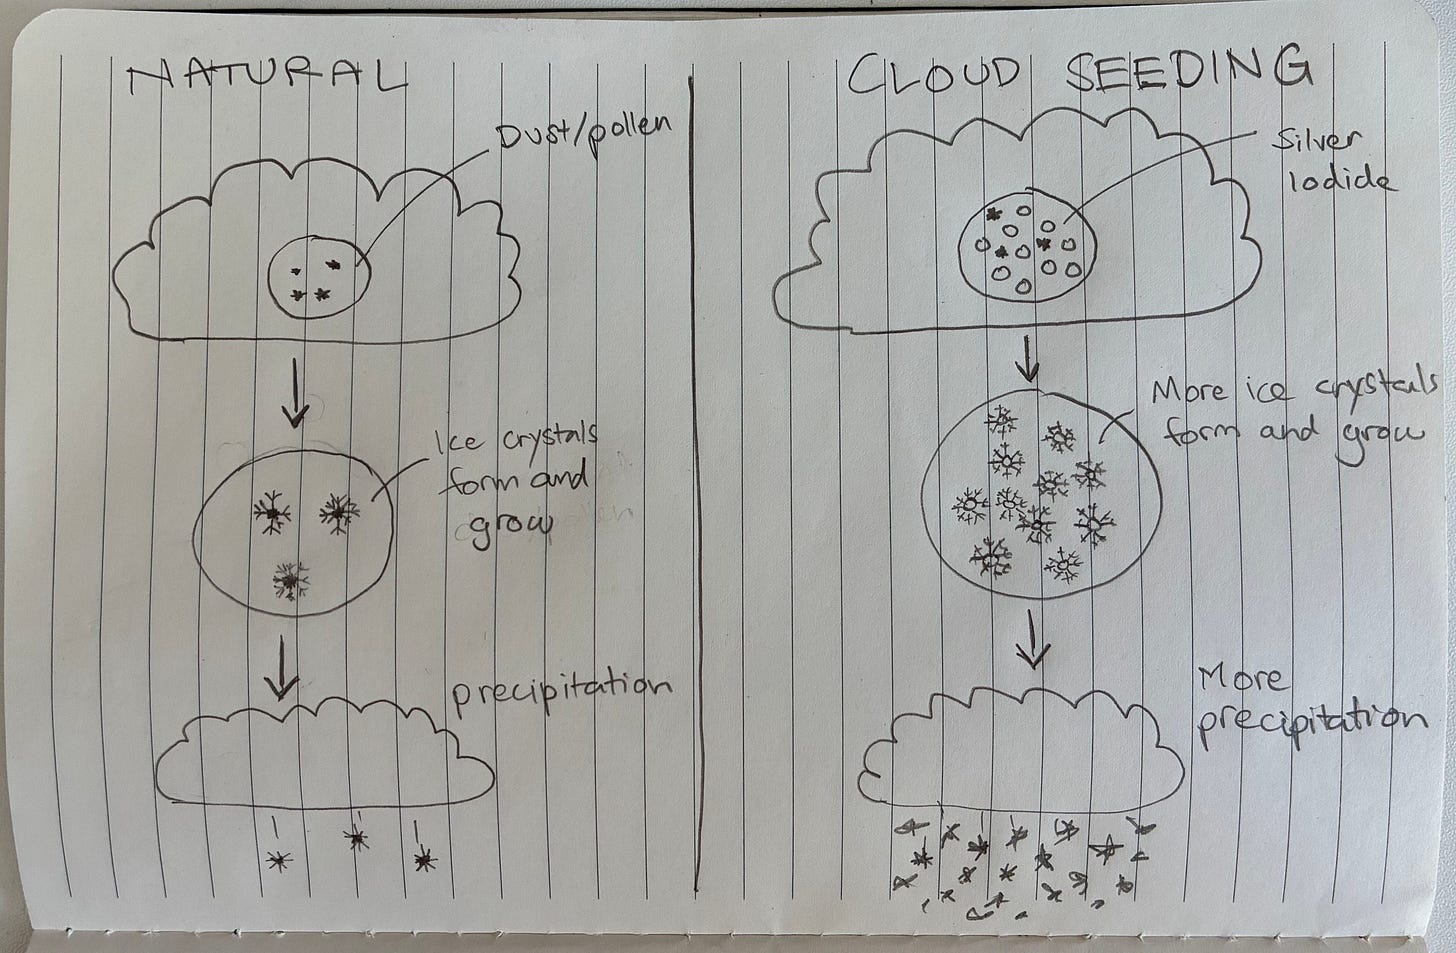 NATURAL
Dust/pollen
Ice crystals
form and
grow
precipitation
CLOUD SEEDING
Silver
Iodide
More ice crystals
form and grow
More
precipitation